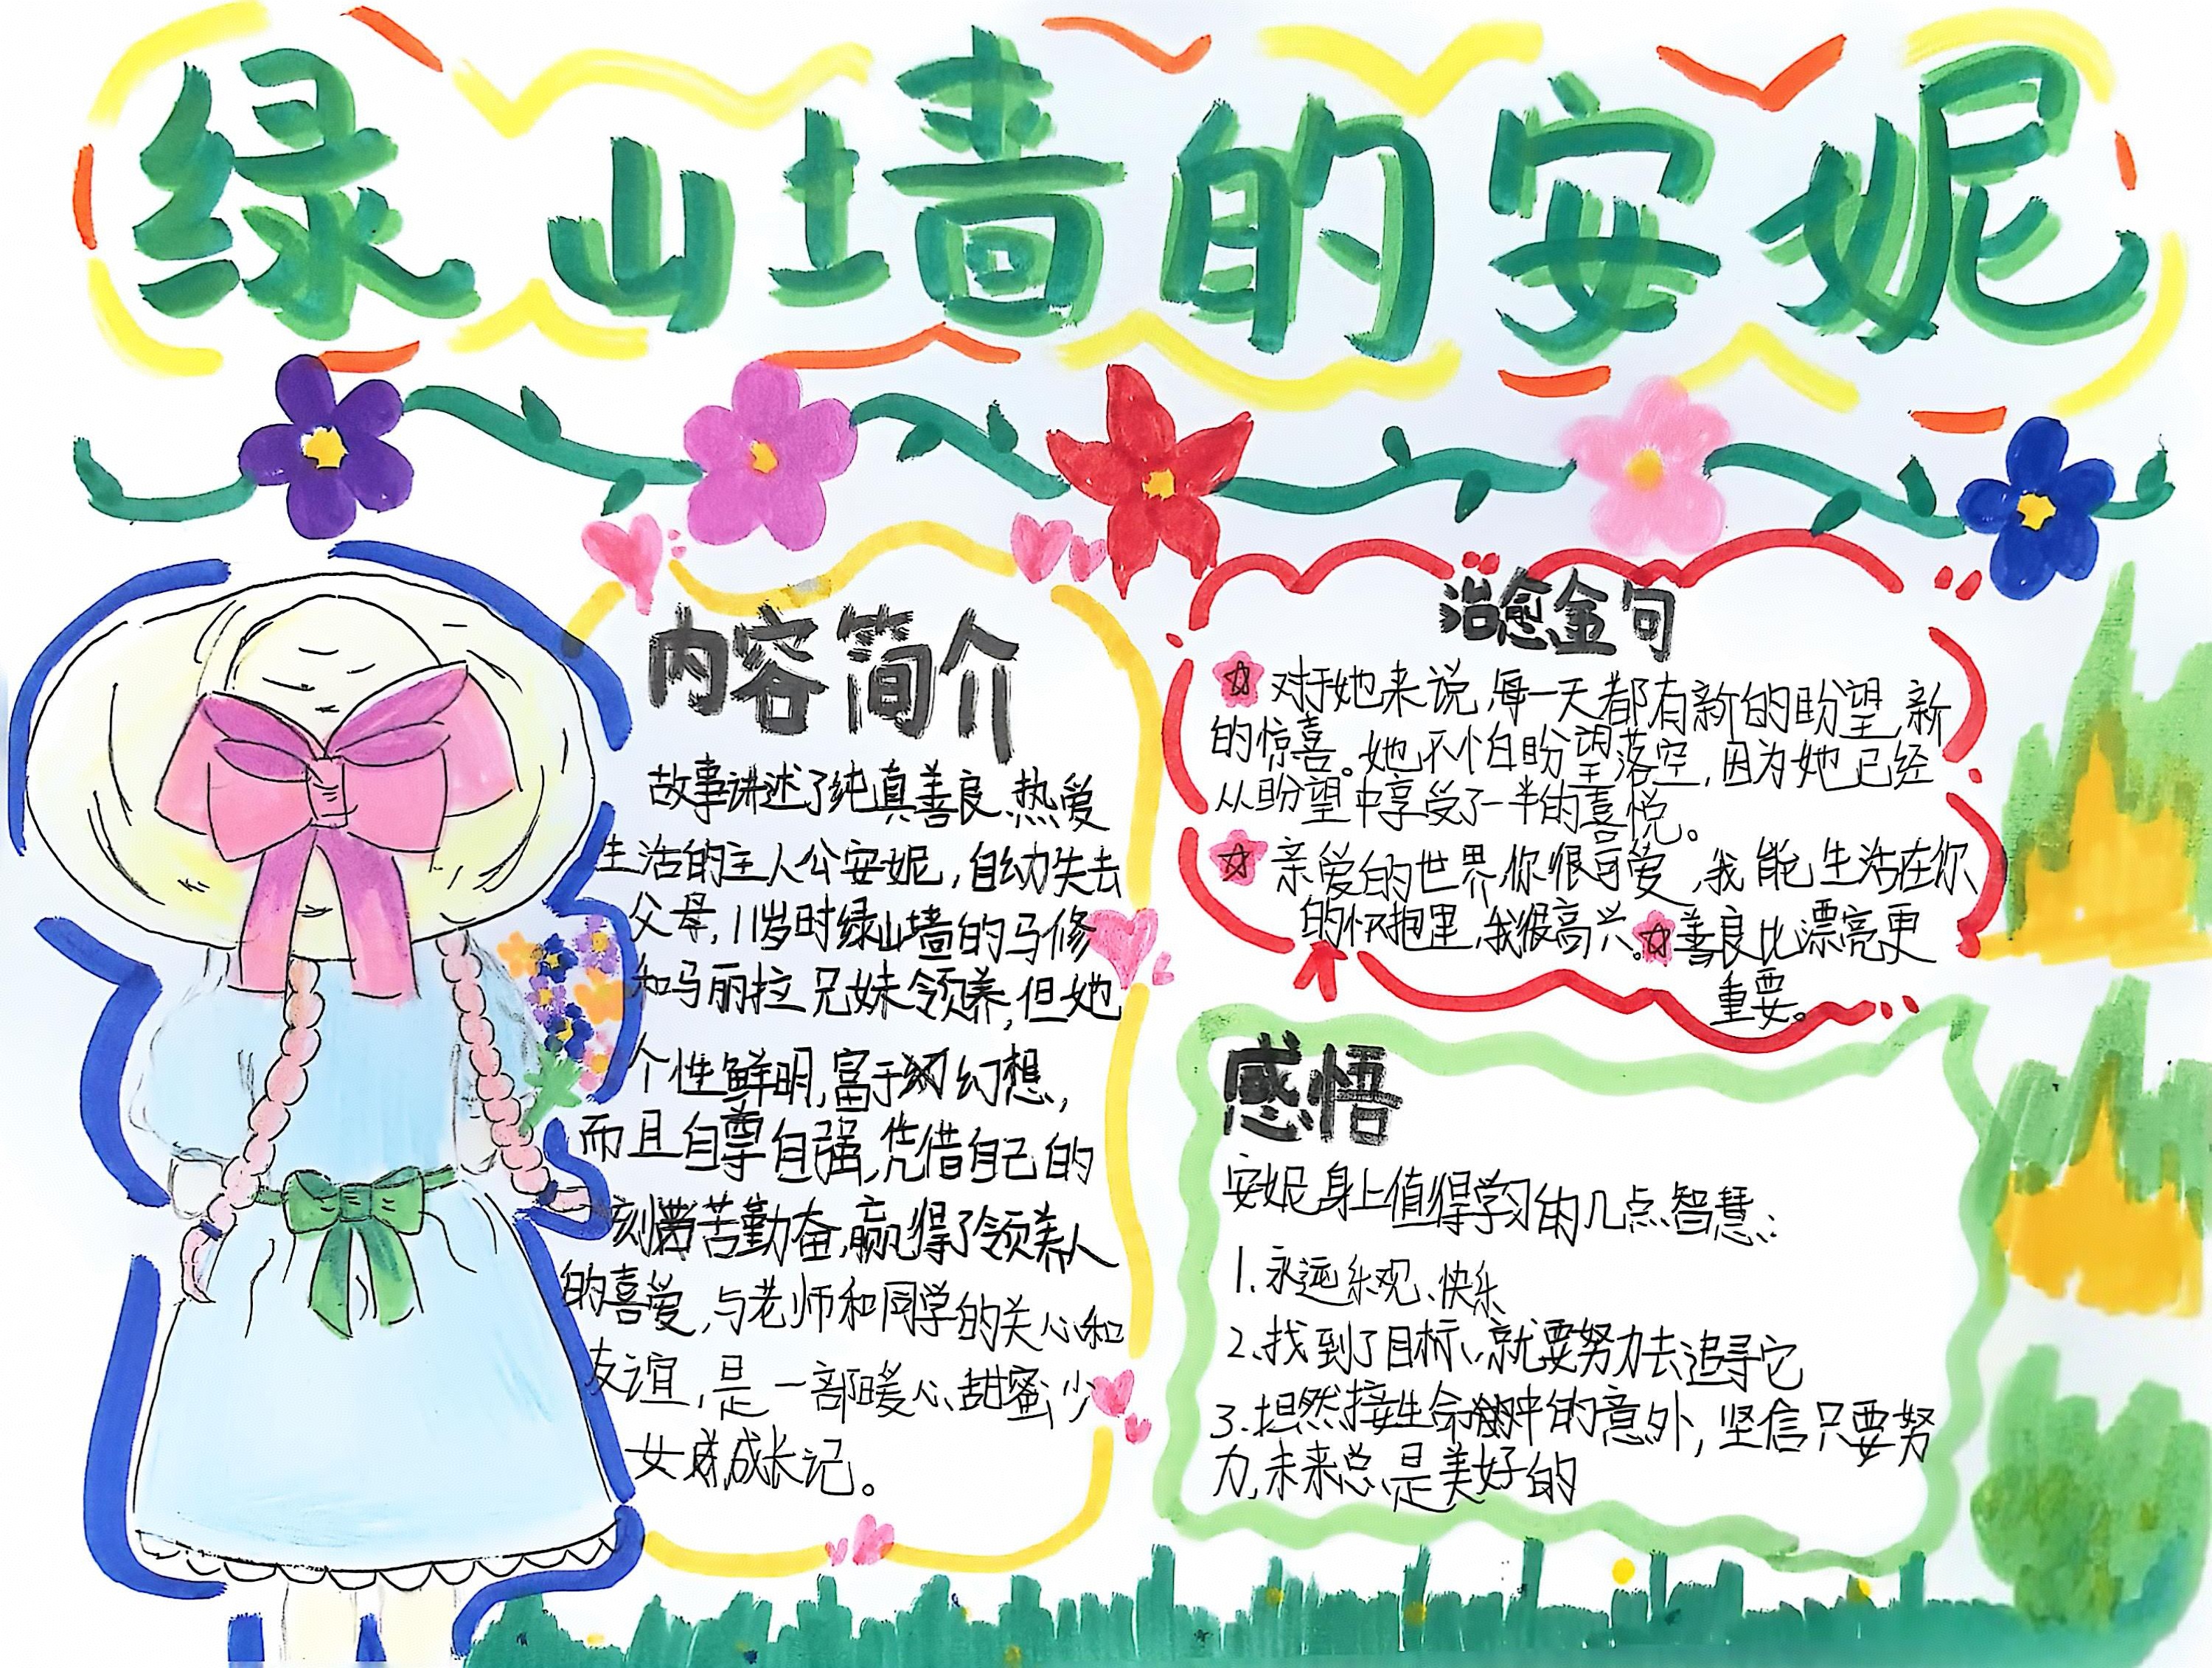 绿山墙的安妮
内容简介
故事讲述了纯真善良、热爱
生活的主人公安妮，自幼失去
父母，11岁时绿山墙的马修
和马丽拉兄妹领养，但她
个性鲜明，富于幻想，
而且自尊自强，凭借自己的
刻苦勤奋，赢得了领养人
的喜爱，与老师和同学的关心和
友谊，是一部暖心甜蜜少
女成长记。
治愈金句
对于她来说，每一天都有新的盼望，新
的惊喜。她不怕盼望落空，因为她已经
从盼望中享受了一半的喜悦。
亲爱的世界，你很可爱，我能生活在你
的怀抱里，我很高兴。善良比漂亮更
重要。
感悟
安妮身上值得学习的几点智慧：
1.永远乐观、快乐
2.找到了目标，就要努力去追寻它
3.坦然接生命中的意外，坚信只要努
力，未来总是美好的